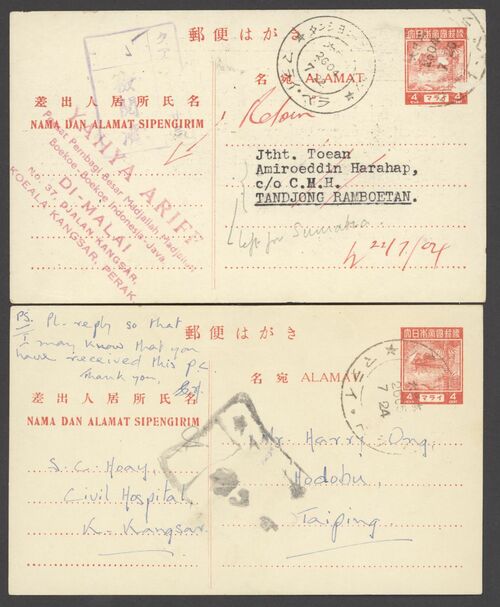 郵便はがき
名宛 ALAMAT
差出人居所氏名
NAMA DAN ALAMAT SIPENGIRIM
大日本帝國郵便
4 マライ 4
YAHYA ARIFF
Pusat Pembagi Besar Madjallah, Madjallah
Boekoe, Boekoe Indonesia-Java,
DI-MALAI
No. 37, DJALAN KANGSAR,
KOEALA KANGSAR, PERAK
Jtht. Toean
Amiroeddin Harahap,
c/o C.M.H.
TANDJONG RAMBOETAN.
left for Sumatra
22/7/04
PS. Pl. reply so that
I may know that you
have received this P.C
Thank you,
郵便はがき
名宛 ALAMAT
差出人居所氏名
NAMA DAN ALAMAT SIPENGIRIM
大日本帝國郵便
4 マライ 4
2605
7 24
S.C. Hoay,
Civil Hospital,
K. Kangsar.
Mr Harry Ong,
Hodobu,
Taiping.